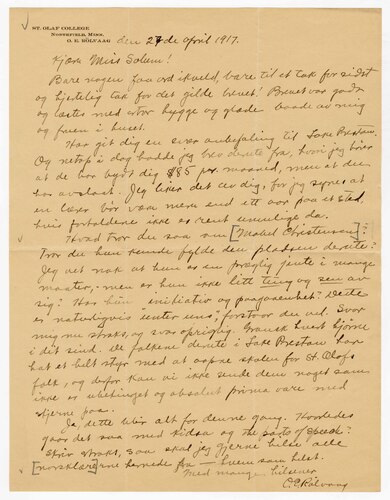 ST. OLAF COLLEGE
NORTHFIELD, MINN.
O. E. RÖLVAAG
den 27de april 1917.
Kjære Miss Solum!
Bare nogen faa ord ikveld, bare til et tak for sidst
og hjertelig tak for det gilde brevet! Brevet var godt
og læstes med stor hygge og glæde baade av mig
og fruen i huset.
Har git dig en svær anbefaling til Lake Preston.
Og netop i dag hadde jeg brev derute fra, hvori jeg hører
at de har bydt dig $85 pr. maaned, men at du
har avslaat. Jeg liker det av dig, for jeg synes at
en lærer bör vaa mere end ett aar paa et sted,
hvis forholdene ikke er rent umulige da.
Hvad tror du saa om [Mabel Christensen]?
Tror du hun kunde fylde den pladsen derute?
Jeg vet nok at hun er en prægtig jente i mange
maater, men er hun ikke litt tung og sen av
sig? Har hun initiativ og paagaaenhet? Dette
er naturligvis enter uns, forstaar du vel. Svar
mig nu straks, og svar oprigtig. Gransk hvert hjörne
i dit sind. De folkene derute i Lake Preston har
hat et helt styr med at aapne skolen for St. Olafs
folk, og derfor kan vi ikke sende dem noget som
ikke er ubetinget og absolut prima vare med
stjerne paa.
Ja, dette blir alt for denne gang. Hvorledes
gaar det saa med kidsa og the parts of speech?
Skriv straks, saa skal jeg gjerne hilse alle
[norsklærerne] hernede fra — hvem som helst.
Med mange hilsener
O. E. Rölvaag